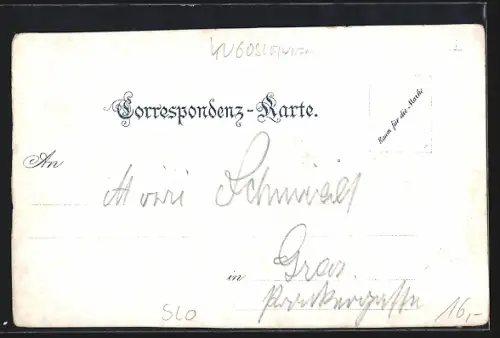 Correspondenz-Karte.
Raum für die Marke
An
Schmidt
in Graz
Prankergasse
SLO
16,-